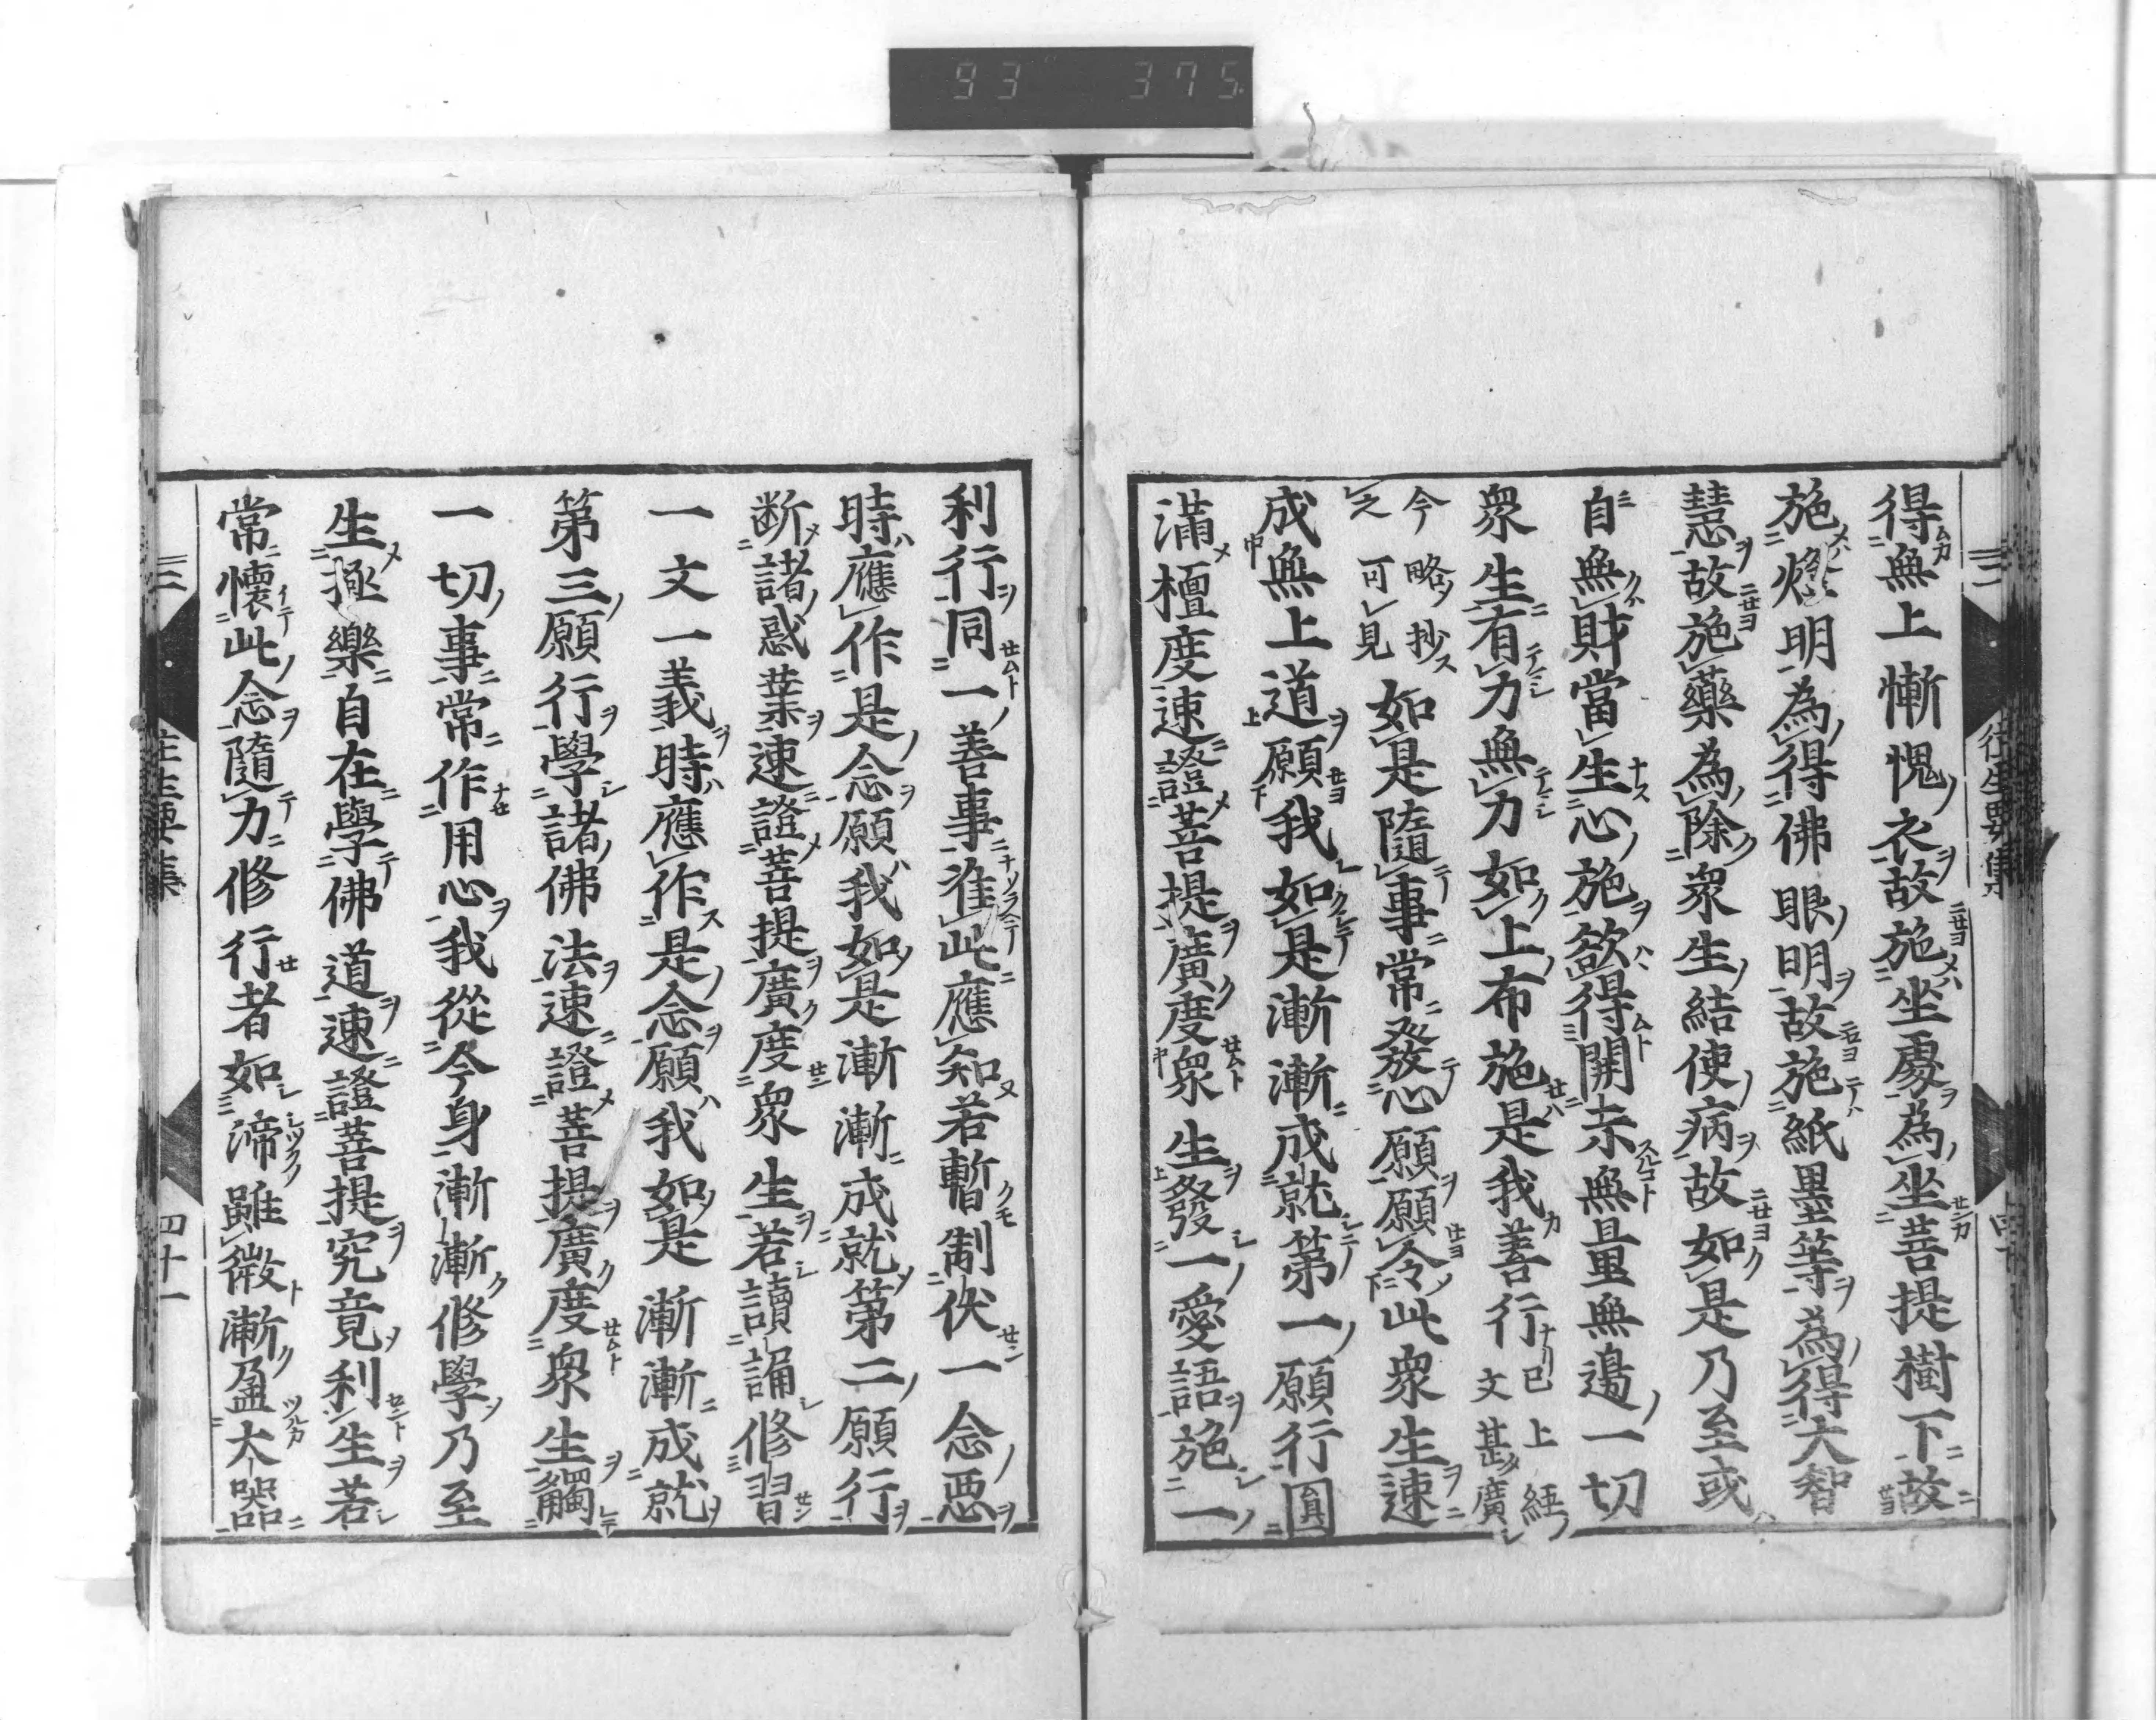 93 375
得無上慚愧衣故施坐處為坐菩提樹下故
施燈明為得佛眼明故施紙墨等為得大智
慧故施藥為除衆生結使病故如是乃至或
自無財當生心施欲得開示無量無邊一切
衆生有力無力如上布施是我善行已上經文甚廣
今略抄之可見如是隨事常發心願願令此衆生速
成無上道願我如是漸漸成就第一願行圓
滿檀度速證菩提廣度衆生發一愛語施一
利行同一善事准此應知若暫制伏一念悪
時應作是念願我如是漸漸成就第二願行
断諸惑業速證菩提廣度衆生若讀誦修習
一文一義時應作是念願我如是漸漸成就
第三願行學諸佛法速證菩提廣度衆生觸
一切事常作用心我從今身漸漸修學乃至
生極樂自在學佛道速證菩提究竟利生若
常懷此念隨力修行者如渧雖微漸盈大器
往生要集
四十一